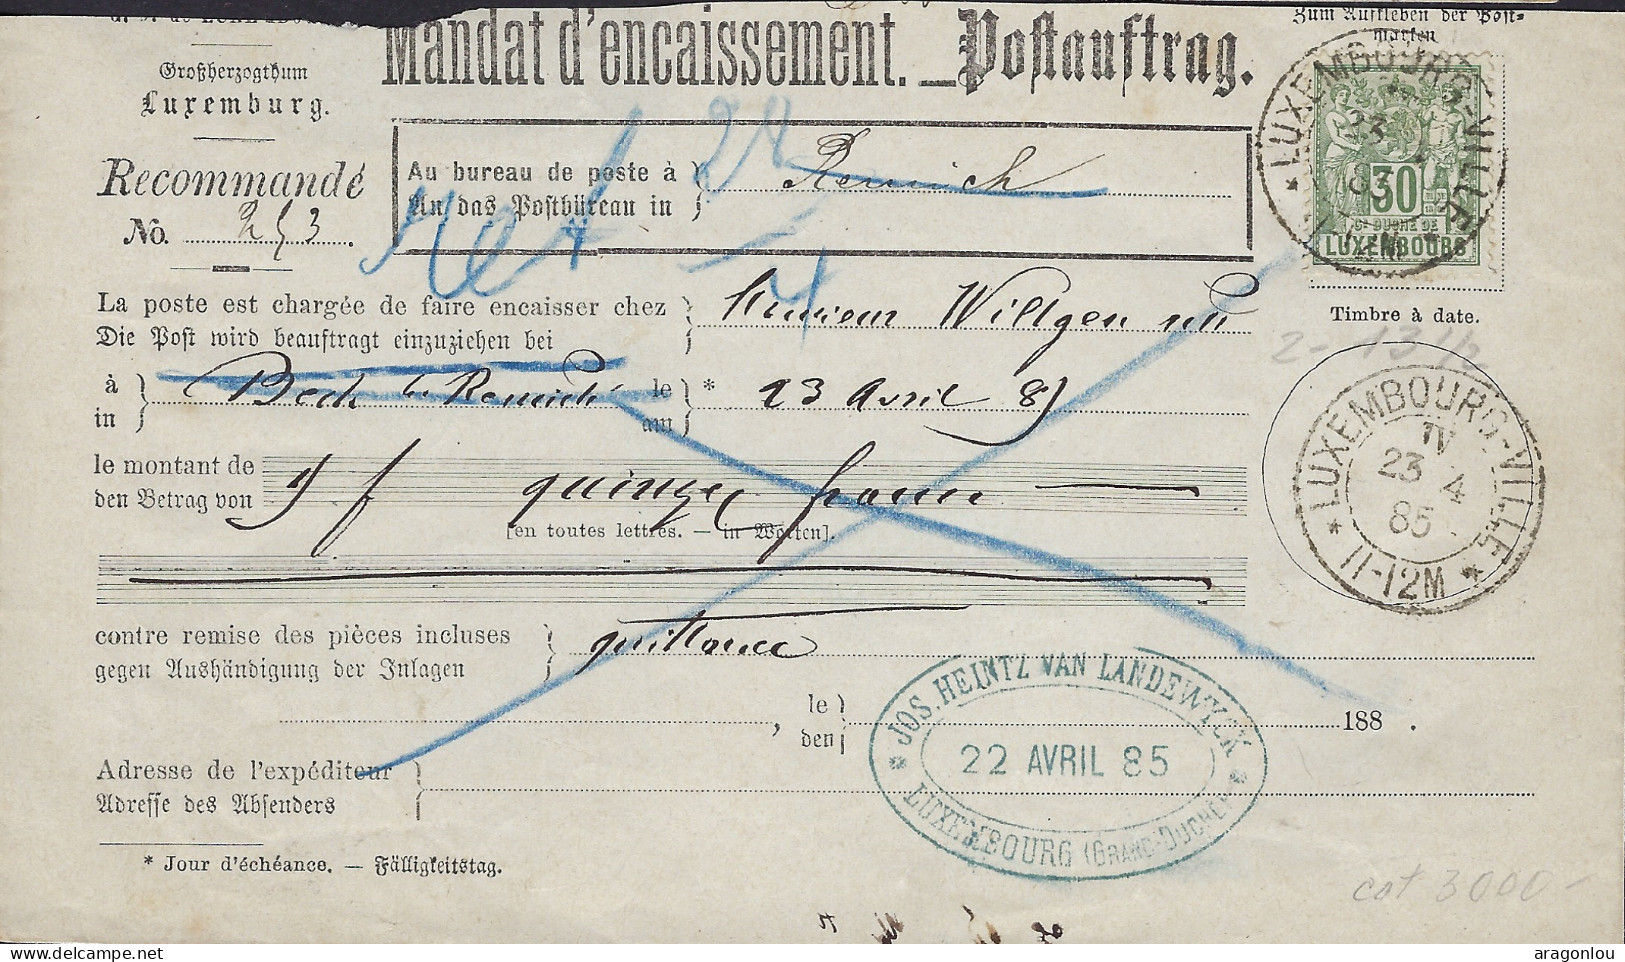 Mandat d'encaissement. — Postauftrag.
Zum Aufkleben der Post-
marken
Großherzogthum
Luxemburg.
Recommandé
No. 253.
Au bureau de poste à } Remich
An das Postbüreau in
LUXEMBOURG-VILLE
23
30
GD DUCHÉ DE
LUXEMBOURG
Timbre à date.
La poste est chargée de faire encaisser chez } Monsieur Willgen
Die Post wird beauftragt einzuziehen bei
2- 13 1/2
à } Bech b. Remich le } * 23 Avril 85
in am
LUXEMBOURG-VILLE
IV
23 4
85
11-12M
le montant de
den Betrag von
15 f quinze francs
[en toutes lettres. — in Worten].
contre remise des pièces incluses } quittance
gegen Aushändigung der Inlagen
, le } 188 .
den
JOS. HEINTZ VAN LANDEWYCK
22 AVRIL 85
LUXEMBOURG (GRAND-DUCHÉ)
Adresse de l'expéditeur }
Adresse des Absenders
* Jour d'échéance. — Fälligkeitstag.
cat 3000-
aragonlou